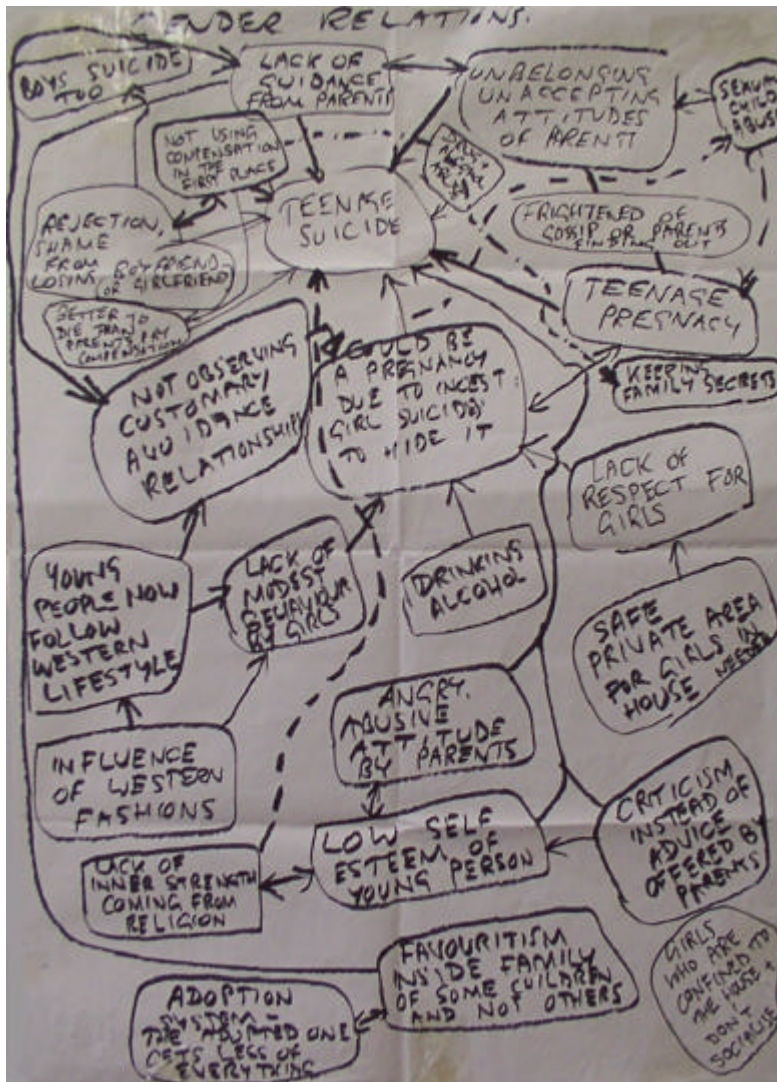 GENDER RELATIONS.
BOYS SUICIDE
TOO
LACK OF
GUIDANCE
FROM PARENTS
UNBELONGING
UNACCEPTING
ATTITUDES
OF PARENTS
SEXUAL
CHILD
ABUSE
NOT USING
COMPENSATION
IN THE
FIRST PLACE
REJECTION,
SHAME
FROM
LOSING BOYFRIEND
OR GIRLFRIEND
TEENAGE
SUICIDE
FRIGHTENED OF
GOSSIP OR PARENTS
FINDING OUT
TEENAGE
PREGNACY
BETTER TO
DIE THAN
PARENTS PAY
COMPENSATION
NOT OBSERVING
CUSTOMARY
AVOIDANCE
RELATIONSHIPS
COULD BE
A PREGNANCY
DUE TO INCEST.
GIRL SUICIDES
TO HIDE IT
KEEPING
FAMILY SECRETS
LACK OF
RESPECT FOR
GIRLS
YOUNG
PEOPLE NOW
FOLLOW
WESTERN
LIFESTYLE
LACK OF
MODEST
BEHAVIOUR
BY GIRLS
DRINKING
ALCOHOL
SAFE
PRIVATE AREA
FOR GIRLS IN
HOUSE NEEDED
INFLUENCE
OF WESTERN
FASHIONS
ANGRY,
ABUSIVE
ATTITUDE
BY PARENTS
CRITICISM
INSTEAD OF
ADVICE
OFFERED BY
PARENTS
LACK OF
INNER STRENGTH
COMING FROM
RELIGION
LOW SELF
ESTEEM OF
YOUNG PERSON
FAVOURITISM
INSIDE FAMILY
OF SOME CHILDREN
AND NOT OTHERS
GIRLS
WHO ARE
CONFINED TO
THE HOUSE +
DON'T
SOCIALISE
ADOPTION
SYSTEM -
THE ADOPTED ONE
GETS LESS OF
EVERYTHING